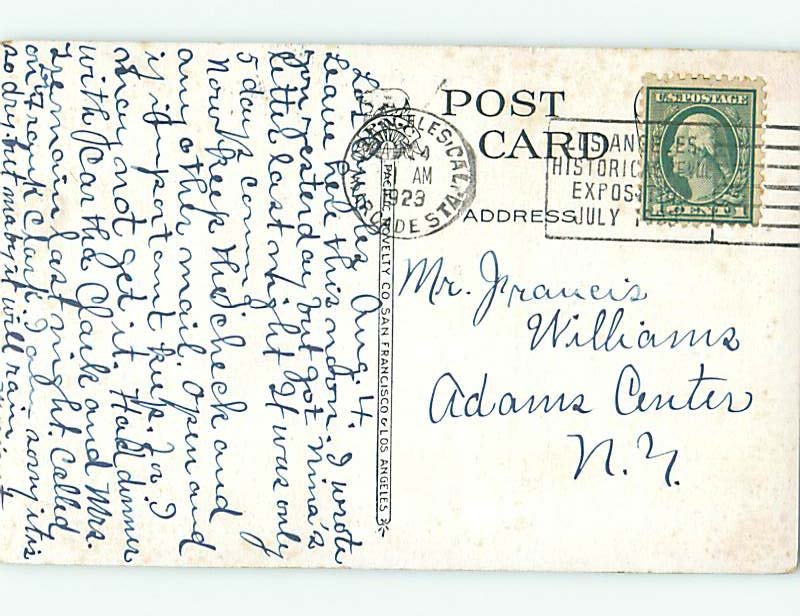 Los Angeles Aug. 4.
Leave here this noon. I wrote
you yesterday but got Nina's
letter last night It was only
5 days coming
Now keep the check and
any other mail. Open and
if important keep. for I
may not get it. Had dinner
with Cartha Clark and Mrs.
Tremain last night. Called
on Frank Clark. I am sorry it is
so dry but maby it will rain
POST
CARD
ADDRESS
PACIFIC NOVELTY CO. SAN FRANCISCO & LOS ANGELES
ANGELES, CAL.
AM
1923
ARCADE STA.
LOS ANGELES
HISTORIC
EXPOS
JULY
U.S. POSTAGE
1 CENT 1
Mr. Francis
Williams
Adams Center
N.Y.